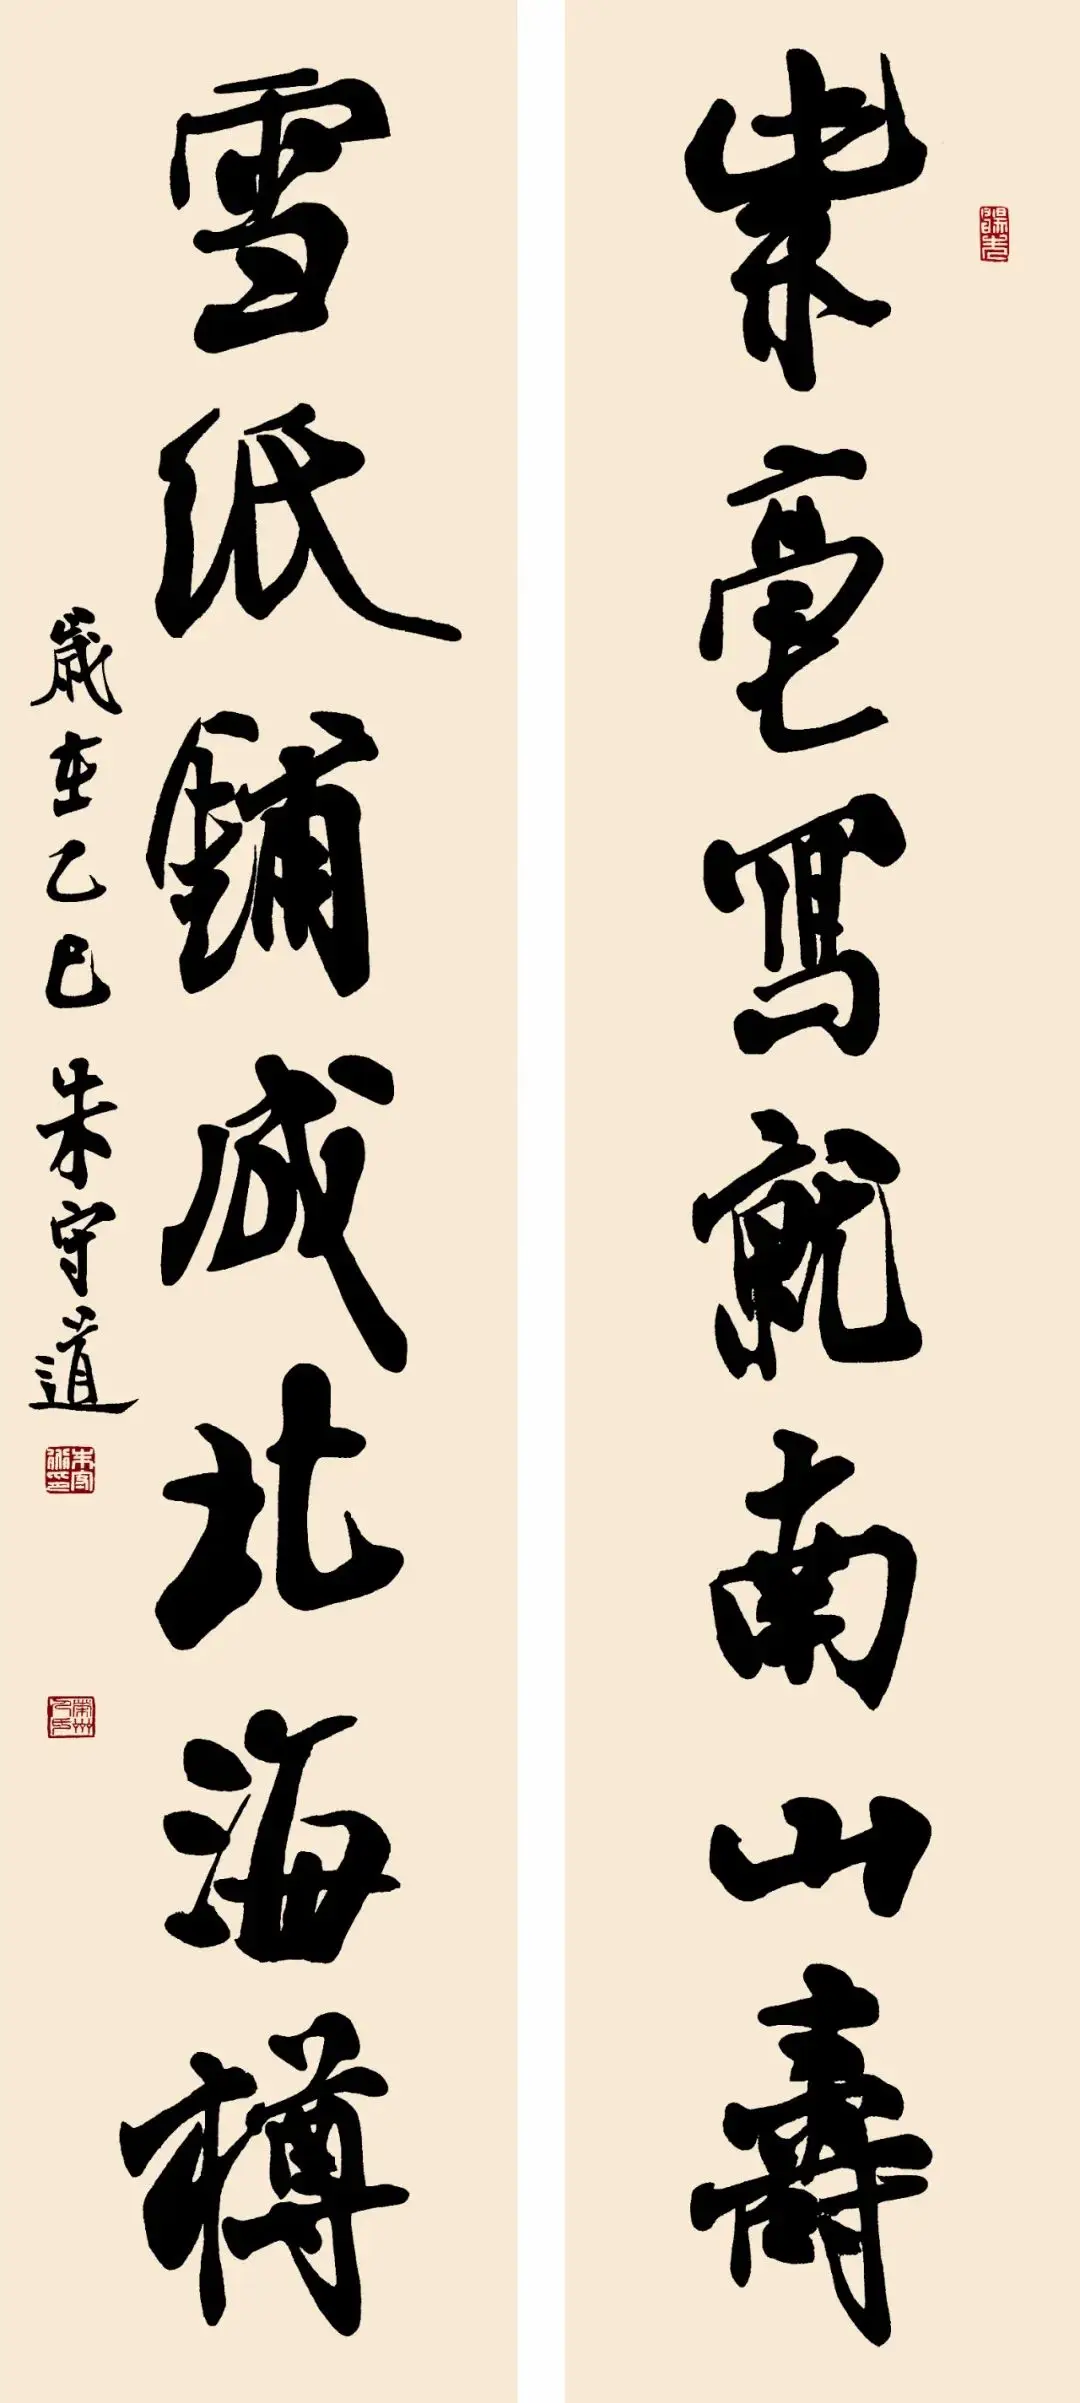 紫毫寫就南山壽
雪紙鋪成北海樽
歲在乙巳 朱守道